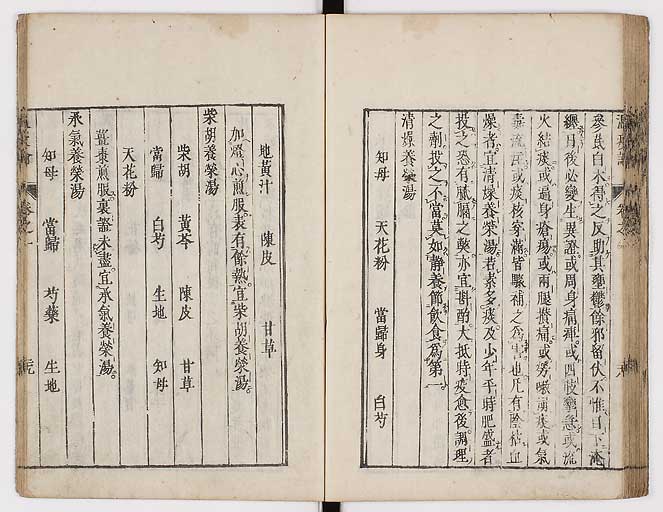 參耆白朮得之反助其壅鬱餘邪留伏不惟目下淹
纏日後必變生異證或周身痛痺或四肢攣急或流
火結痰或遍身瘡瘍或兩腿攢痛或勞嗽湧痰或氣
毒流注或痰核穿漏皆驟補之為害也凡有陰枯血
燥者宜清燥養榮湯若素多痰及少年平時肥盛者
投之恐有膩膈之弊亦宜斟酌大抵時疫愈後調理
之劑投之不當莫如靜養節飲食為第一
清燥養榮湯
知母 天花粉 當歸身 白芍
地黃汁 陳皮 甘草
加燈心煎服表有餘熱宜柴胡養榮湯
柴胡養榮湯
柴胡 黃芩 陳皮 甘草
當歸 白芍 生地 知母
天花粉
薑棗煎服裏證未盡宜承氣養榮湯
承氣養榮湯
知母 當歸 芍藥 生地